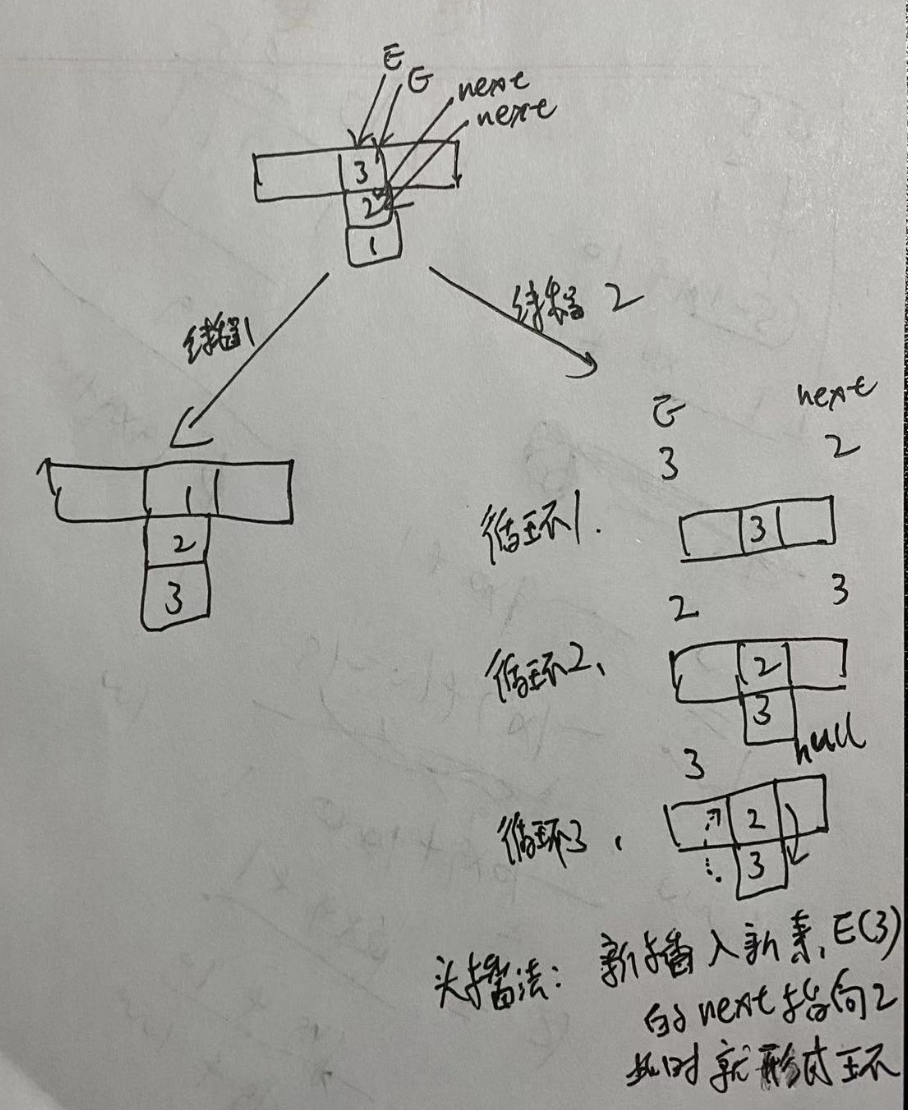 E
E
next
next
3
2
1
线程1
线程2
1
2
3
E next
3 2
循环1.
3
2 3
循环2、
2
3
3 null
循环3、
2
3
头插法：新插入新元素，E(3)
的next指向2
此时就形成环